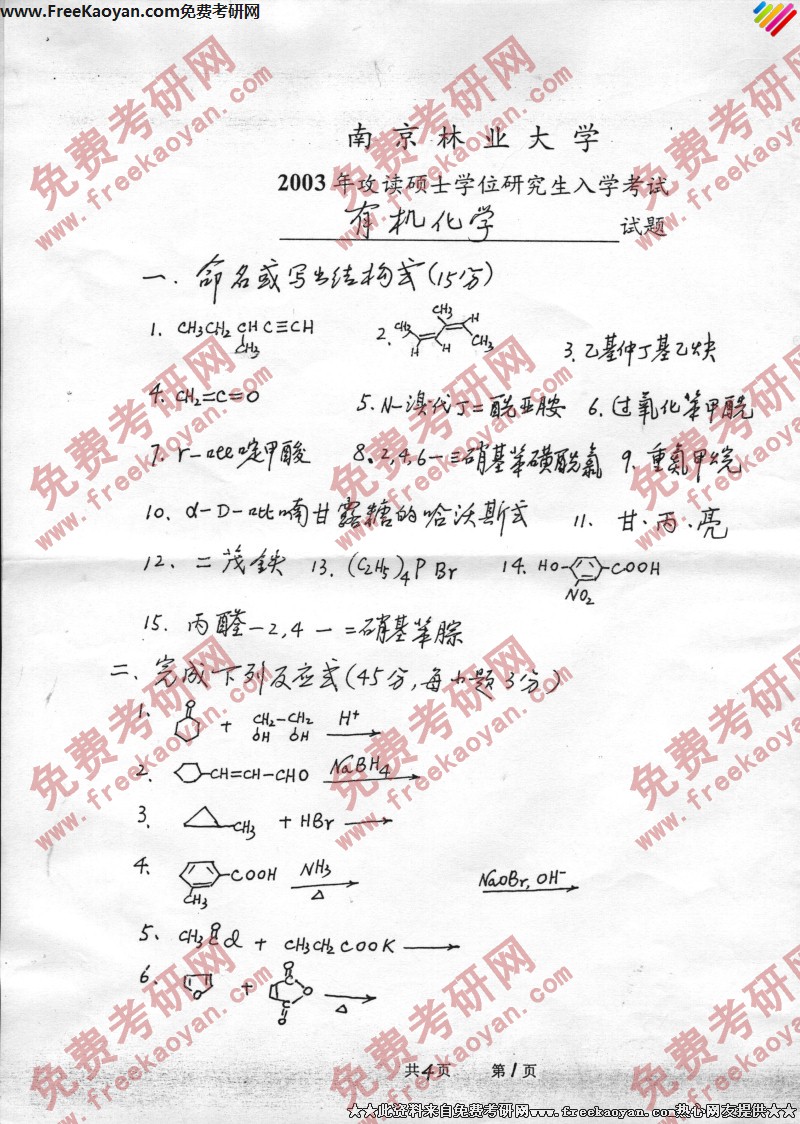 www.FreeKaoyan.com免费考研网
南京林业大学
2003年攻读硕士学位研究生入学考试
有机化学 试题
一、命名或写出结构式(15分)
1. CH3CH2CHC≡CH
CH3
2. CH3 CH3 H H H CH3
3. 乙基仲丁基乙炔
4. CH2=C=O
5. N-溴代丁二酰亚胺 6. 过氧化苯甲酰
7. r-吡啶甲酸 8、2,4,6-三硝基苯磺酰氯 9. 重氮甲烷
10. α-D-吡喃甘露糖的哈沃斯式 11. 甘、丙、亮
12. 二茂铁 13. (C2H5)4PBr 14. HO- -COOH
NO2
15. 丙醛-2,4-二硝基苯腙
二、完成下列反应式(45分,每小题3分)
1. O + CH2-CH2 H+
OH OH
2. -CH=CH-CHO NaBH4
3. -CH3 + HBr
4. -COOH NH3 △ NaOBr, OH-
CH3
5. CH3CCl + CH3CH2COOK
O
6. O + O O O △
共4页 第1页
★★此资料来自免费考研网www.freekaoyan.com热心网友提供★★
免费考研网
www.freekaoyan.com